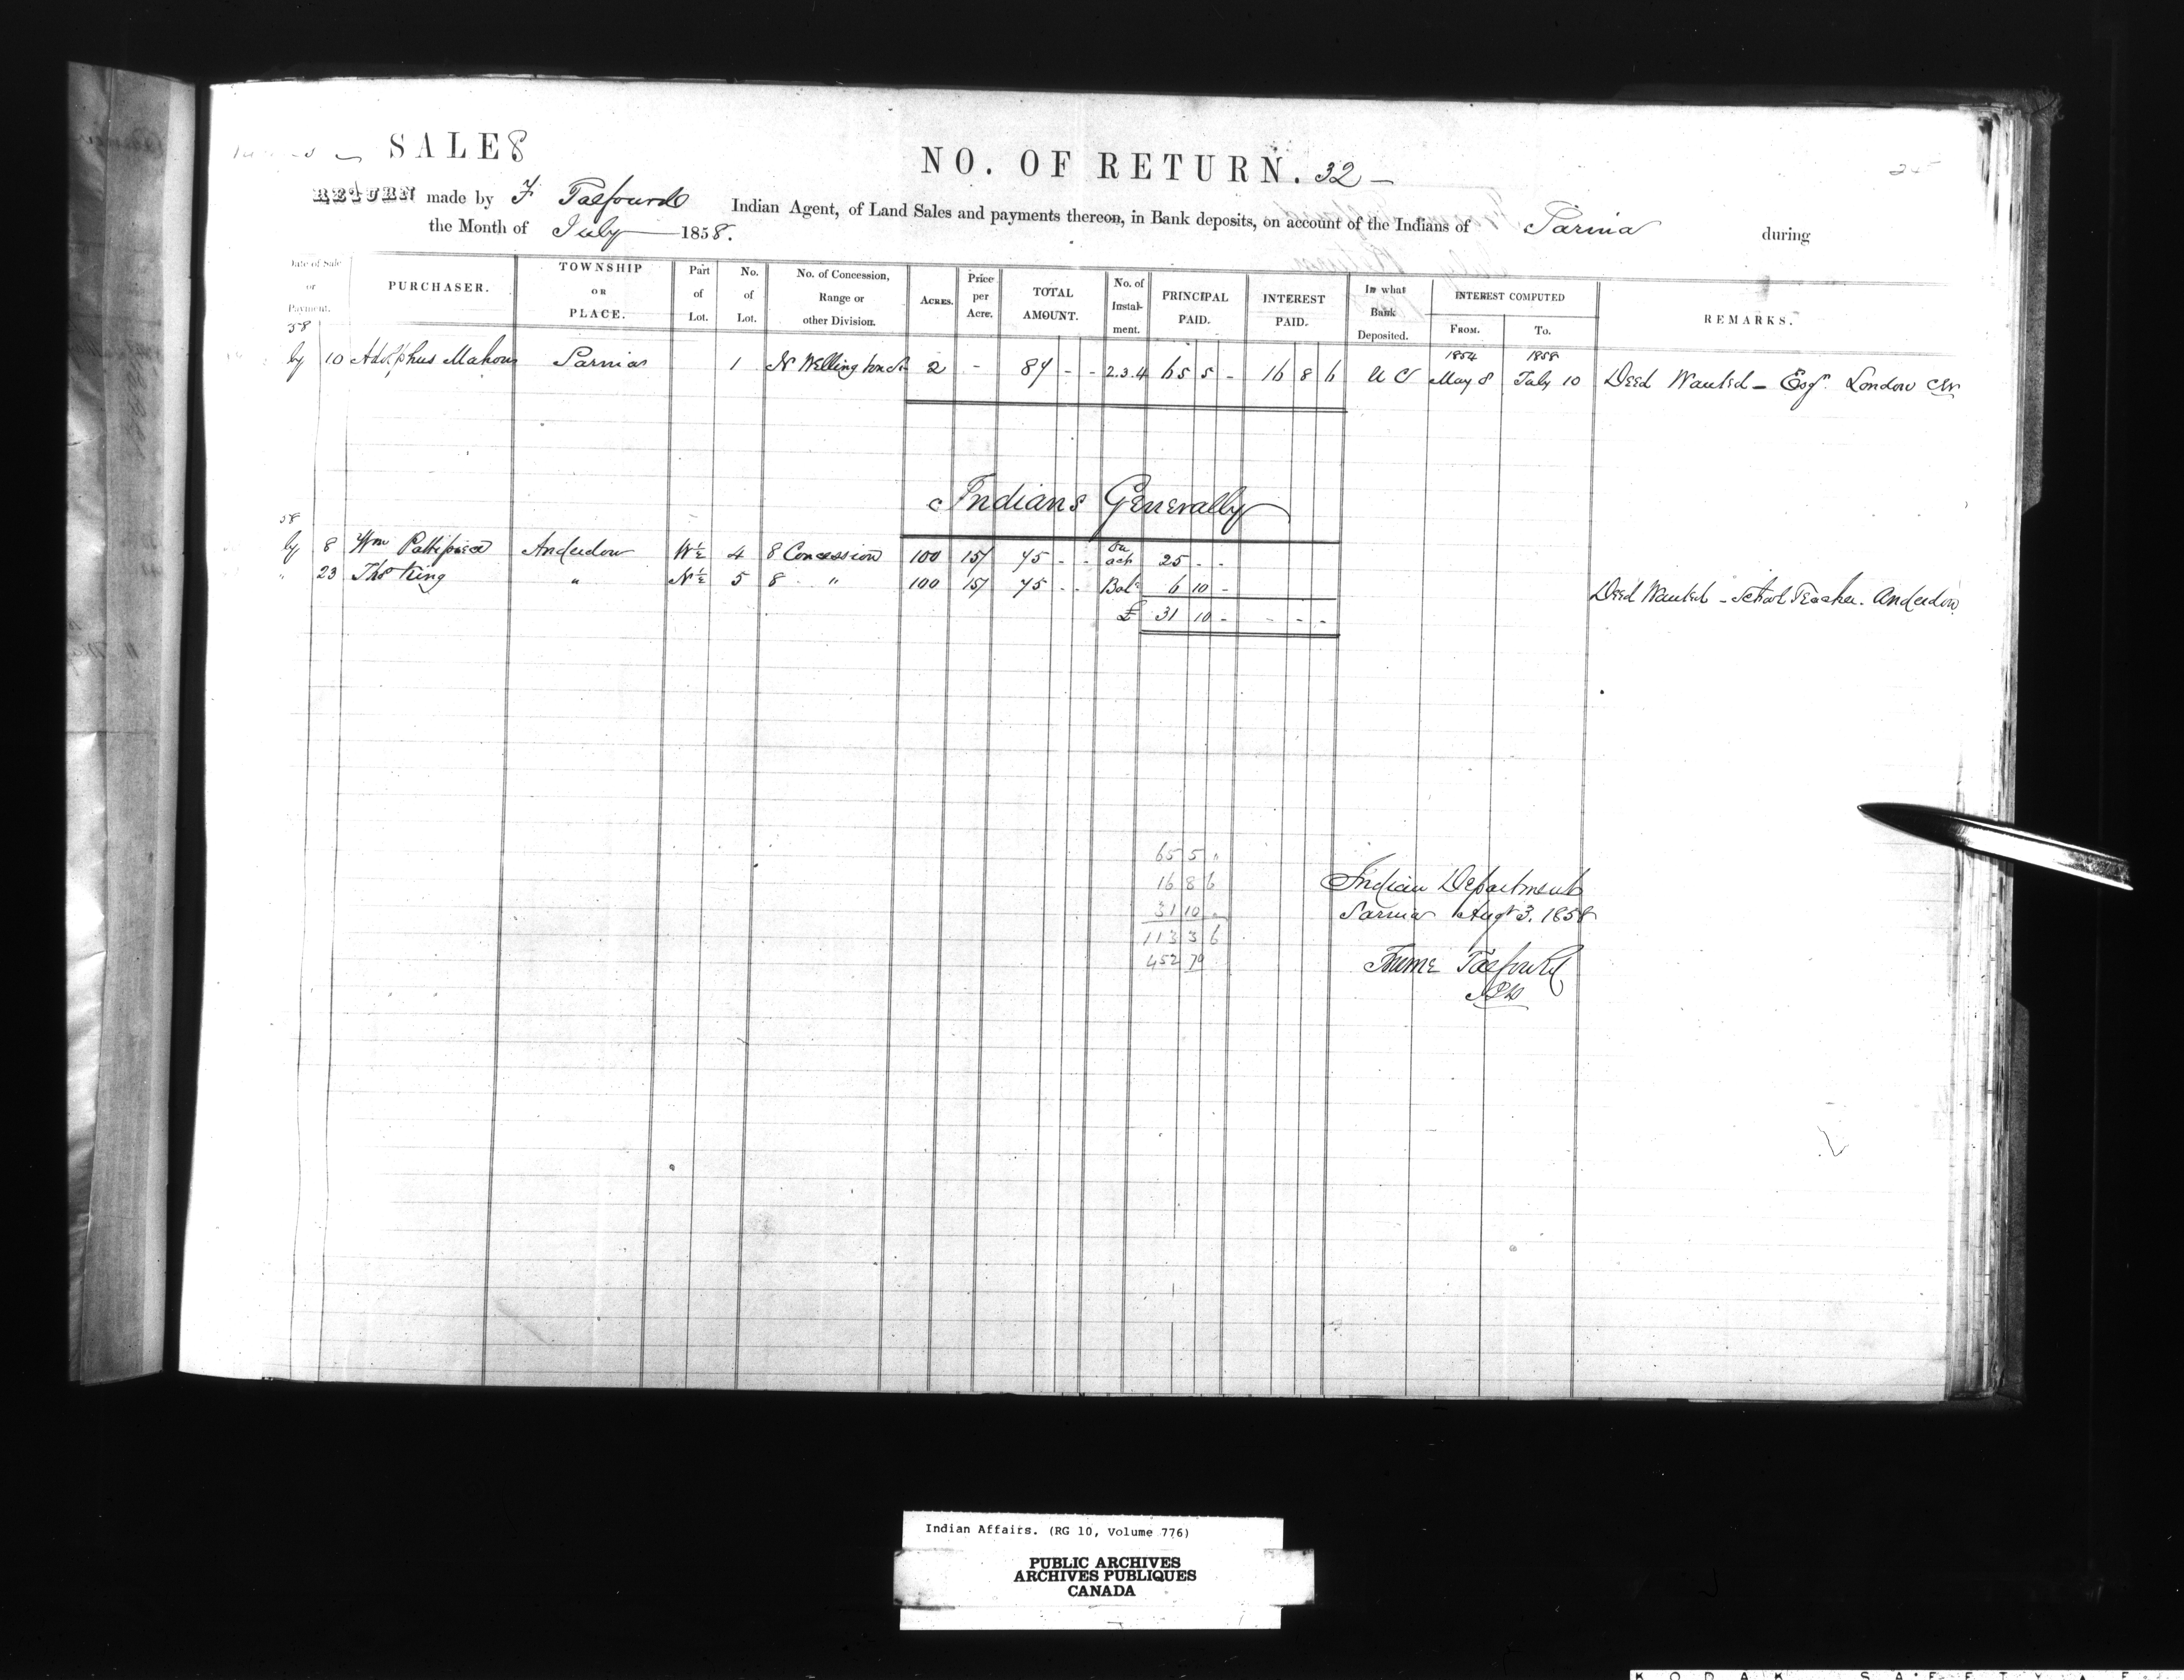 SALES
NO. OF RETURN. 32 —
25
RETURN made by F Talfourd Indian Agent, of Land Sales and payments thereon, in Bank deposits, on account of the Indians of Sarnia during
the Month of July 1858.
Date of Sale or Payment. PURCHASER. TOWNSHIP OR PLACE. Part of Lot. No. of Lot. No. of Concession, Range or other Division. ACRES. Price per Acre. TOTAL AMOUNT. No. of Instalment. PRINCIPAL PAID. INTEREST PAID. In what Bank Deposited. INTEREST COMPUTED FROM. TO. REMARKS.
58 1854 1858
ly 10 Adolphus Mahon Sarnia 1 N Wellington St 2 - 84 - - 2.3.4 65 5 - 16 8 6 U C May 8 July 10 Deed Wanted - Esqr. London CW
Indians Generally
58
ly 8 Wm Pattipiece Anderdon W½ 4 8 Concession 100 15/ 75 - - On acct 25 - -
" 23 Thos King " N½ 5 8 " 100 15/ 75 - - Bale 6 10 - Deed Wanted - School Teacher. Anderdon
£ 31 10 - - - -
65 5 "
16 8 6
31 10 -
113 3 6
452 70
Indian Department
Sarnia Augt 3. 1858
Froome Talfourd
Indian Affairs. (RG 10, Volume 776)
PUBLIC ARCHIVES
ARCHIVES PUBLIQUES
CANADA
KODAK SAFETY